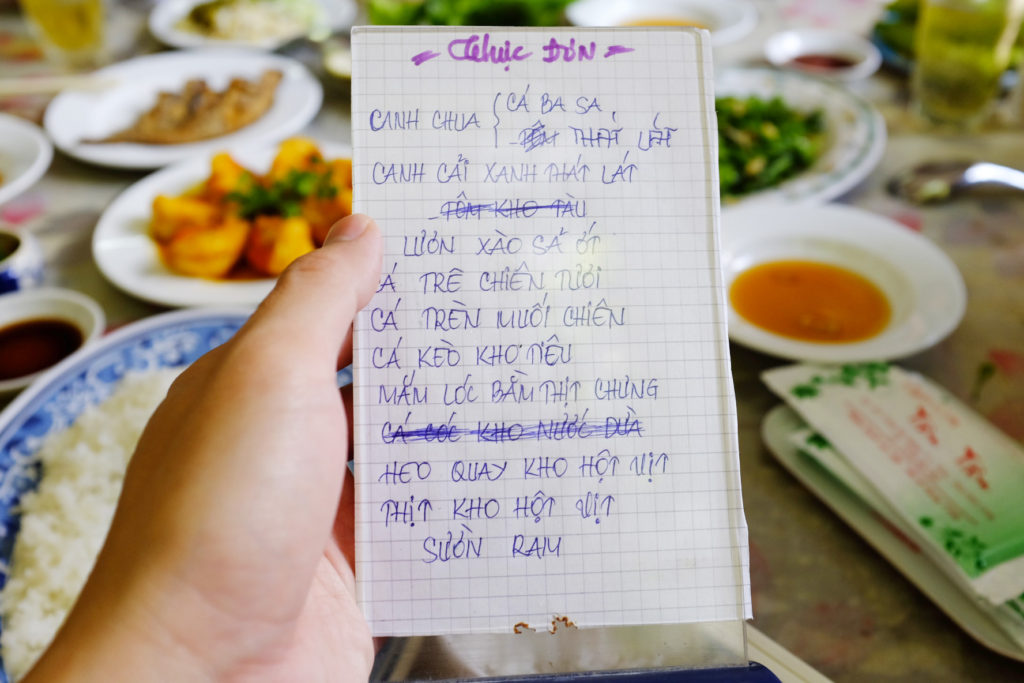 Thực Đơn
CANH CHUA { CÁ BA SA
- TÔM THÁT LÁT
CANH CẢI XANH THÁT LÁT
- TÔM KHO TÀU
LƯƠN XÀO SẢ ỚT
CÁ TRÊ CHIÊN TƯƠI
CÁ TRÈN MUỐI CHIÊN
CÁ KÈO KHO TIÊU
MẮM LÓC BẰM THỊT CHƯNG
CÁ LÓC KHO NƯỚC DỪA
HEO QUAY KHO HỘT VỊT
THỊT KHO HỘT VỊT
SƯỜN RAM